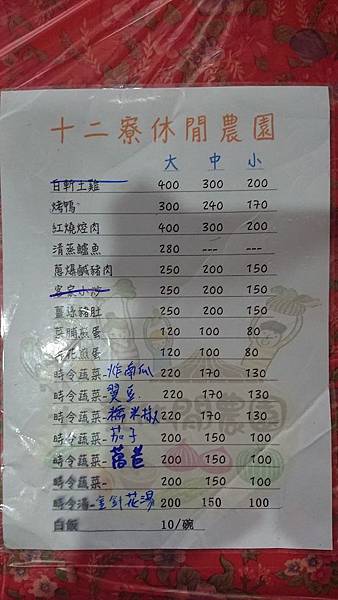 十二寮休閒農園
大 中 小
白斬土雞 400 300 200
烤鴨 300 240 170
紅燒焢肉 400 300 200
清蒸鱸魚 280 --- ---
蔥爆鹹豬肉 250 200 150
客家小炒 250 200 150
薑絲豬肚 250 200 150
菜脯煎蛋 120 100 80
煎蛋 120 100 80
時令蔬菜-炸南瓜 220 170 130
時令蔬菜-翼豆 220 170 130
時令蔬菜-糯米椒 220 170 130
時令蔬菜-茄子 200 150 100
時令蔬菜-萵苣 200 150 100
時令蔬菜- 200 150 100
時令湯-金針花湯 200 150 100
白飯 10/碗
農園